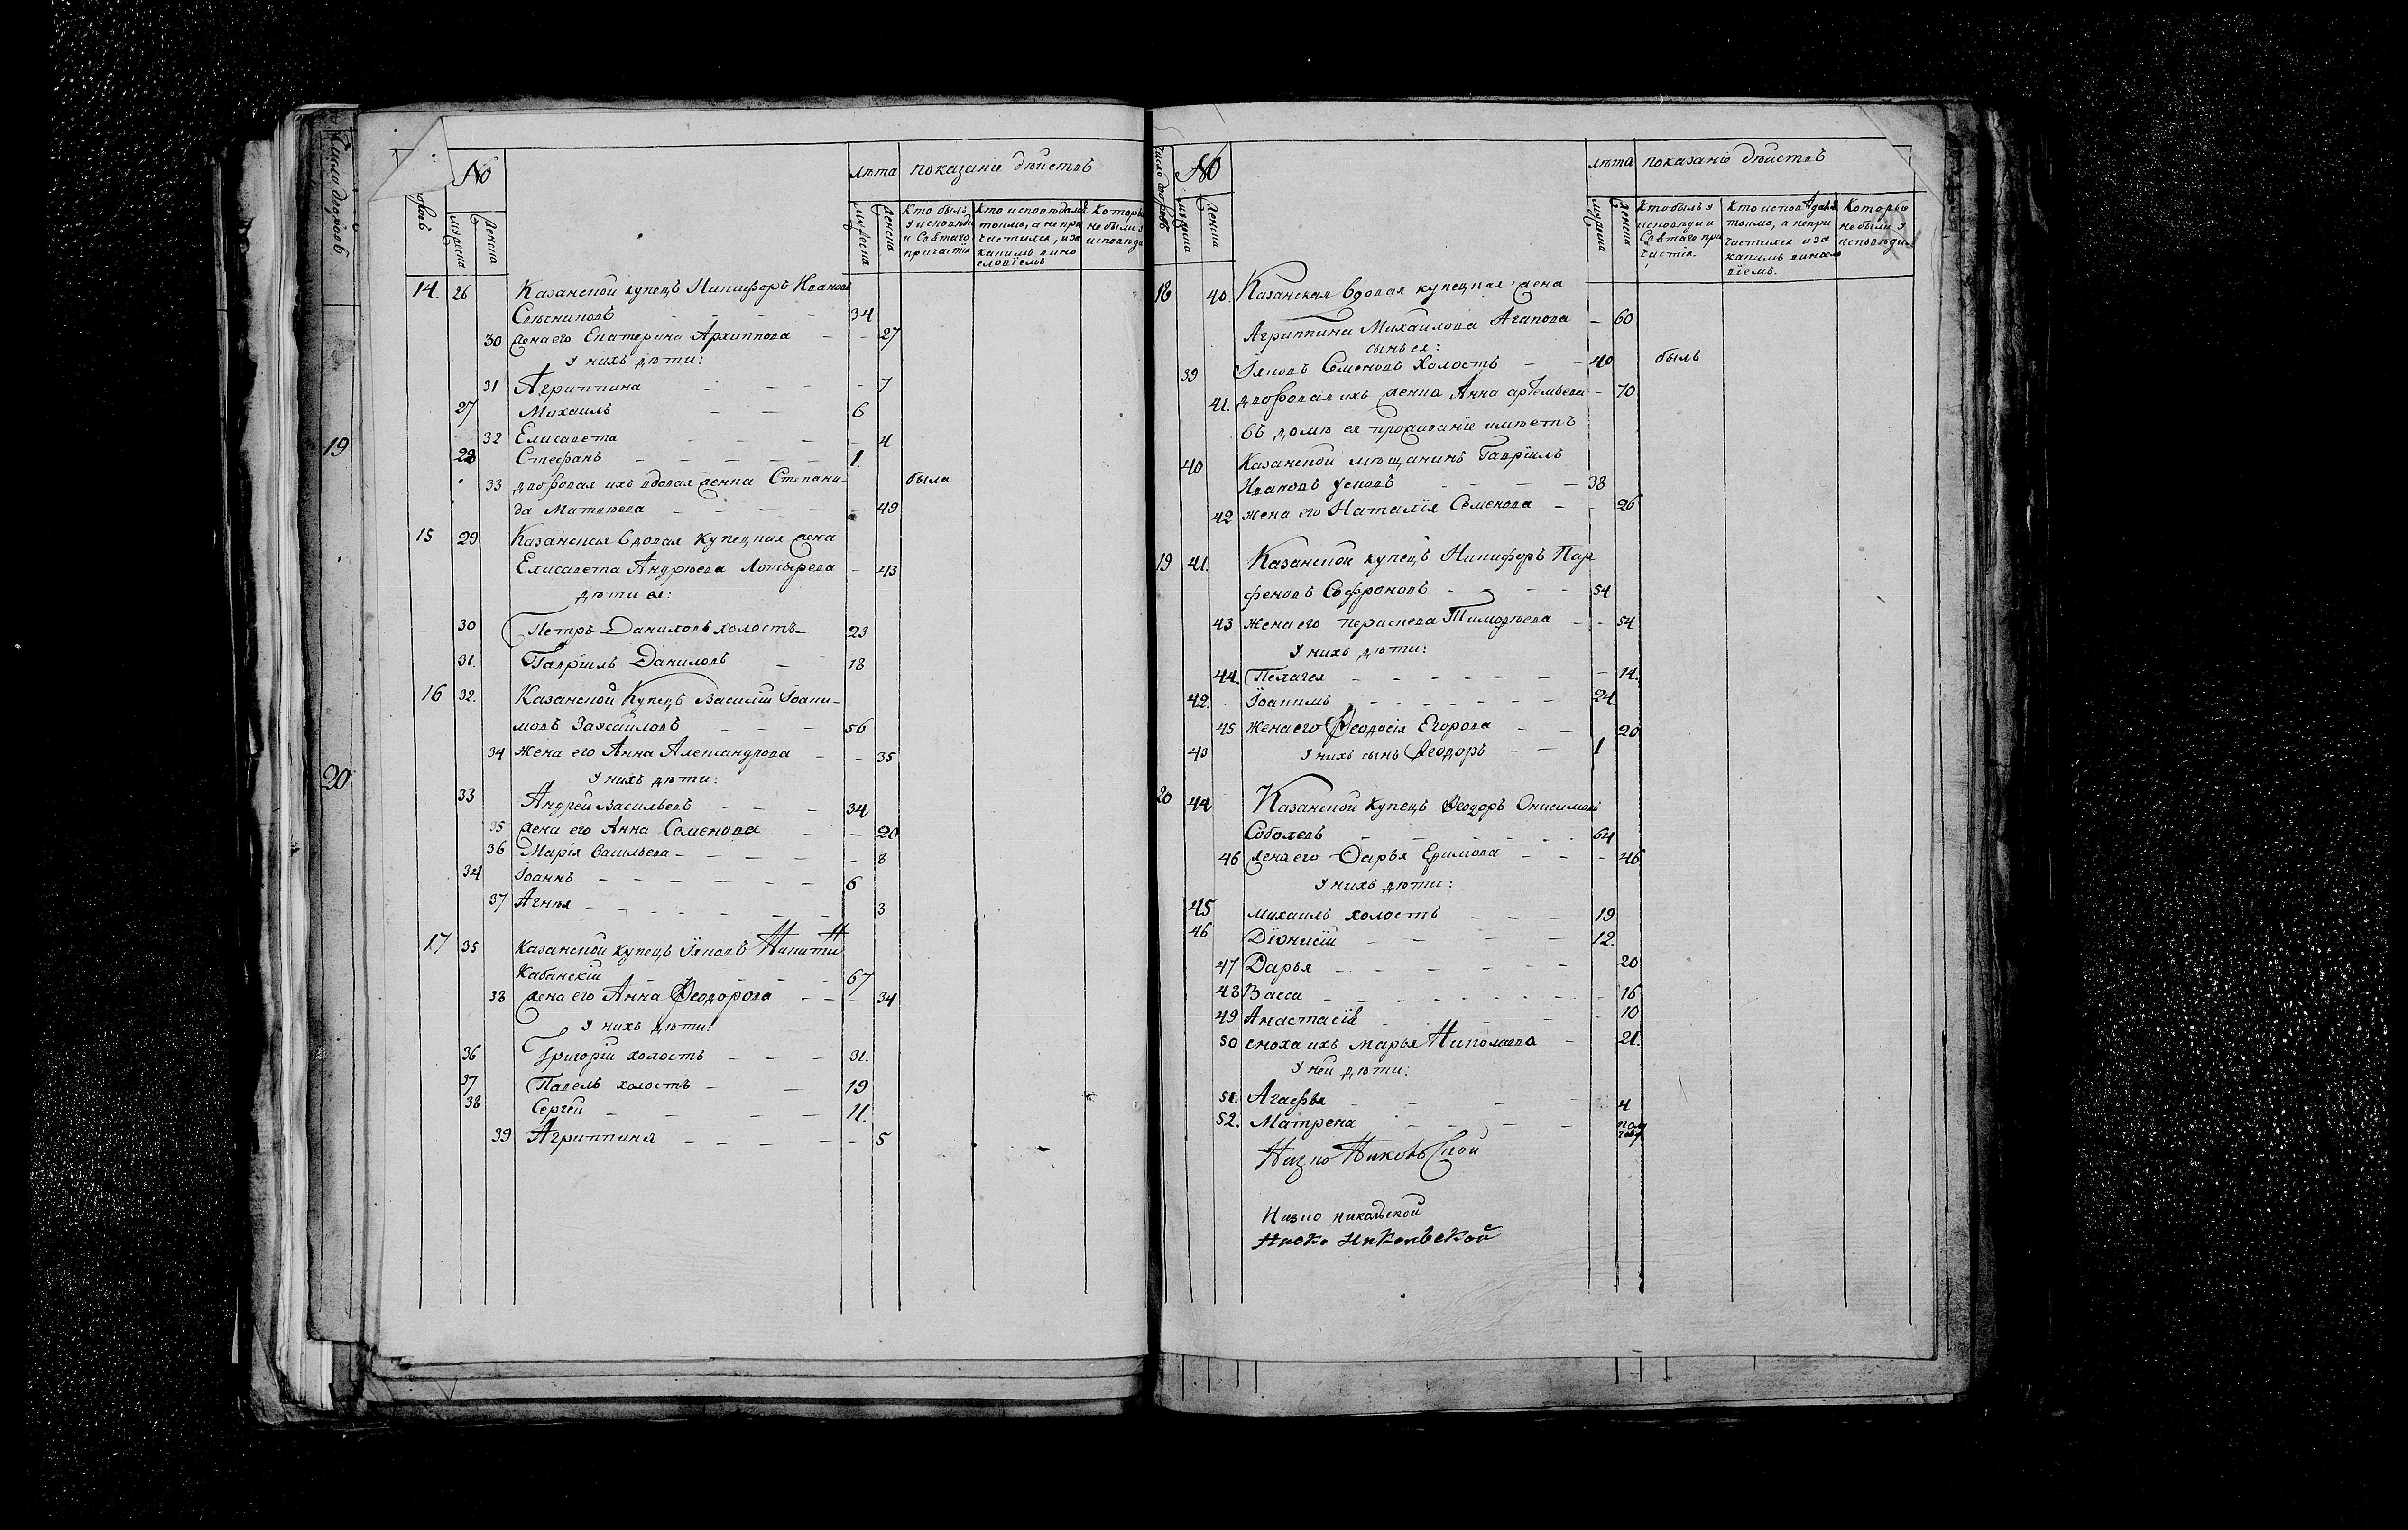 Число дворовъ
19
20
№
лѣта показаніе дѣйствъ
мужеска
женска
мужеска
женска
Кто былъ
у исповѣди
и Святаго
причастія
Кто исповѣдался
токмо, а не при
частился, и за
какимъ вино
словіемъ
Которые
не были у
исповѣди
14. 26 Казанской купецъ Никифоръ Ивановъ
34
30 жена его Екатерина Архиппова - - 27
У нихъ дѣти:
31 Агриппина - - - - 7
27 Михаилъ - - 6
32 Елисавета - - - - - 4
28 Стефанъ - - - - - 1.
33 дворовая ихъ вдовая женка Степани- была
да Матвѣева - - - - - 49
15 29 Казанская вдовая купецкая жена
Елисавета Андрѣева Лотырева - 43
дѣти ея:
30 Петръ Даниловъ холостъ 23
31. Гавріилъ Даниловъ - - 18
16 32. Казанской Купецъ Василій Іоаки-
мовъ - - - 56
34 Жена его Анна Александрова - - 35
У нихъ дѣти:
33 Андрей Васильевъ - - - 34
35 жена его Анна Семенова - - 20
36 Марія Васильева - - - - - 8
34 Іоаннъ - - - - - - 6
37 Агнія - - - - - - - 3
17 35 Казанской купецъ Іяковъ Никити
Кабанскій - - - - 67
38 жена его Анна Ѳеодорова - - - 34
У нихъ дѣти:
36 Григорій холостъ - - - 31.
37 Павелъ холостъ - - 19
38 Сергей - - - - - 11.
39 Агриппина - - - - - - 5
Число дворовъ
№
лѣта показаніе дѣйствъ
мужеска
женска
мужеска
женска
Кто былъ у
исповѣди и
Святаго при
частія.
Кто исповѣдался
токмо, а непри
частился и за
какимъ винасло
віемъ.
Которые
не были у
исповѣди
18 40. Казанская вдовая купецкая жена
Агриппина Михайлова Агапова - 60
сынъ ея:
39 Іяковъ Семеновъ Холостъ - - 40 былъ
41. дворовая ихъ женка Анна артемьева - 70
въ домѣ ея проживаніе имѣетъ
40 Казанской мѣщанинъ Гавріилъ
Ивановъ Усковъ - - - - 38
42 жена его Наталія Семенова - - 26
19 41. Казанской купецъ Никифоръ Пар
феновъ Софроновъ - - - - 54
43 Жена его Параскева Тимофѣева - - 54
У нихъ дѣти:
44. Пелагея - - - - - - - 14.
42. Іоакимъ - - - - - - - 24.
45 Жена его Ѳеодосія Егорова - - - 20
43 У нихъ сынъ Ѳеодоръ - - 1
20 44 Казанской Купецъ Ѳеодоръ Онисимовъ
Соболевъ - - - - - - 64
46 жена его Дарья Ефимова - - - 46
У нихъ дѣти:
45 михаилъ холостъ - - - 19
46 Діонисій - - - - 12.
47 Дарья - - - - - - 20
48 Васса - - - - - - - - 16
49 Анастасія - - - - - 10
50 сноха ихъ Марья Николаева - 21.
У ней дѣти:
51. Агафья - - - 4
52. Матрена - - - - пол
года
Низко Никольской
Низко никольской
Низко Никольской